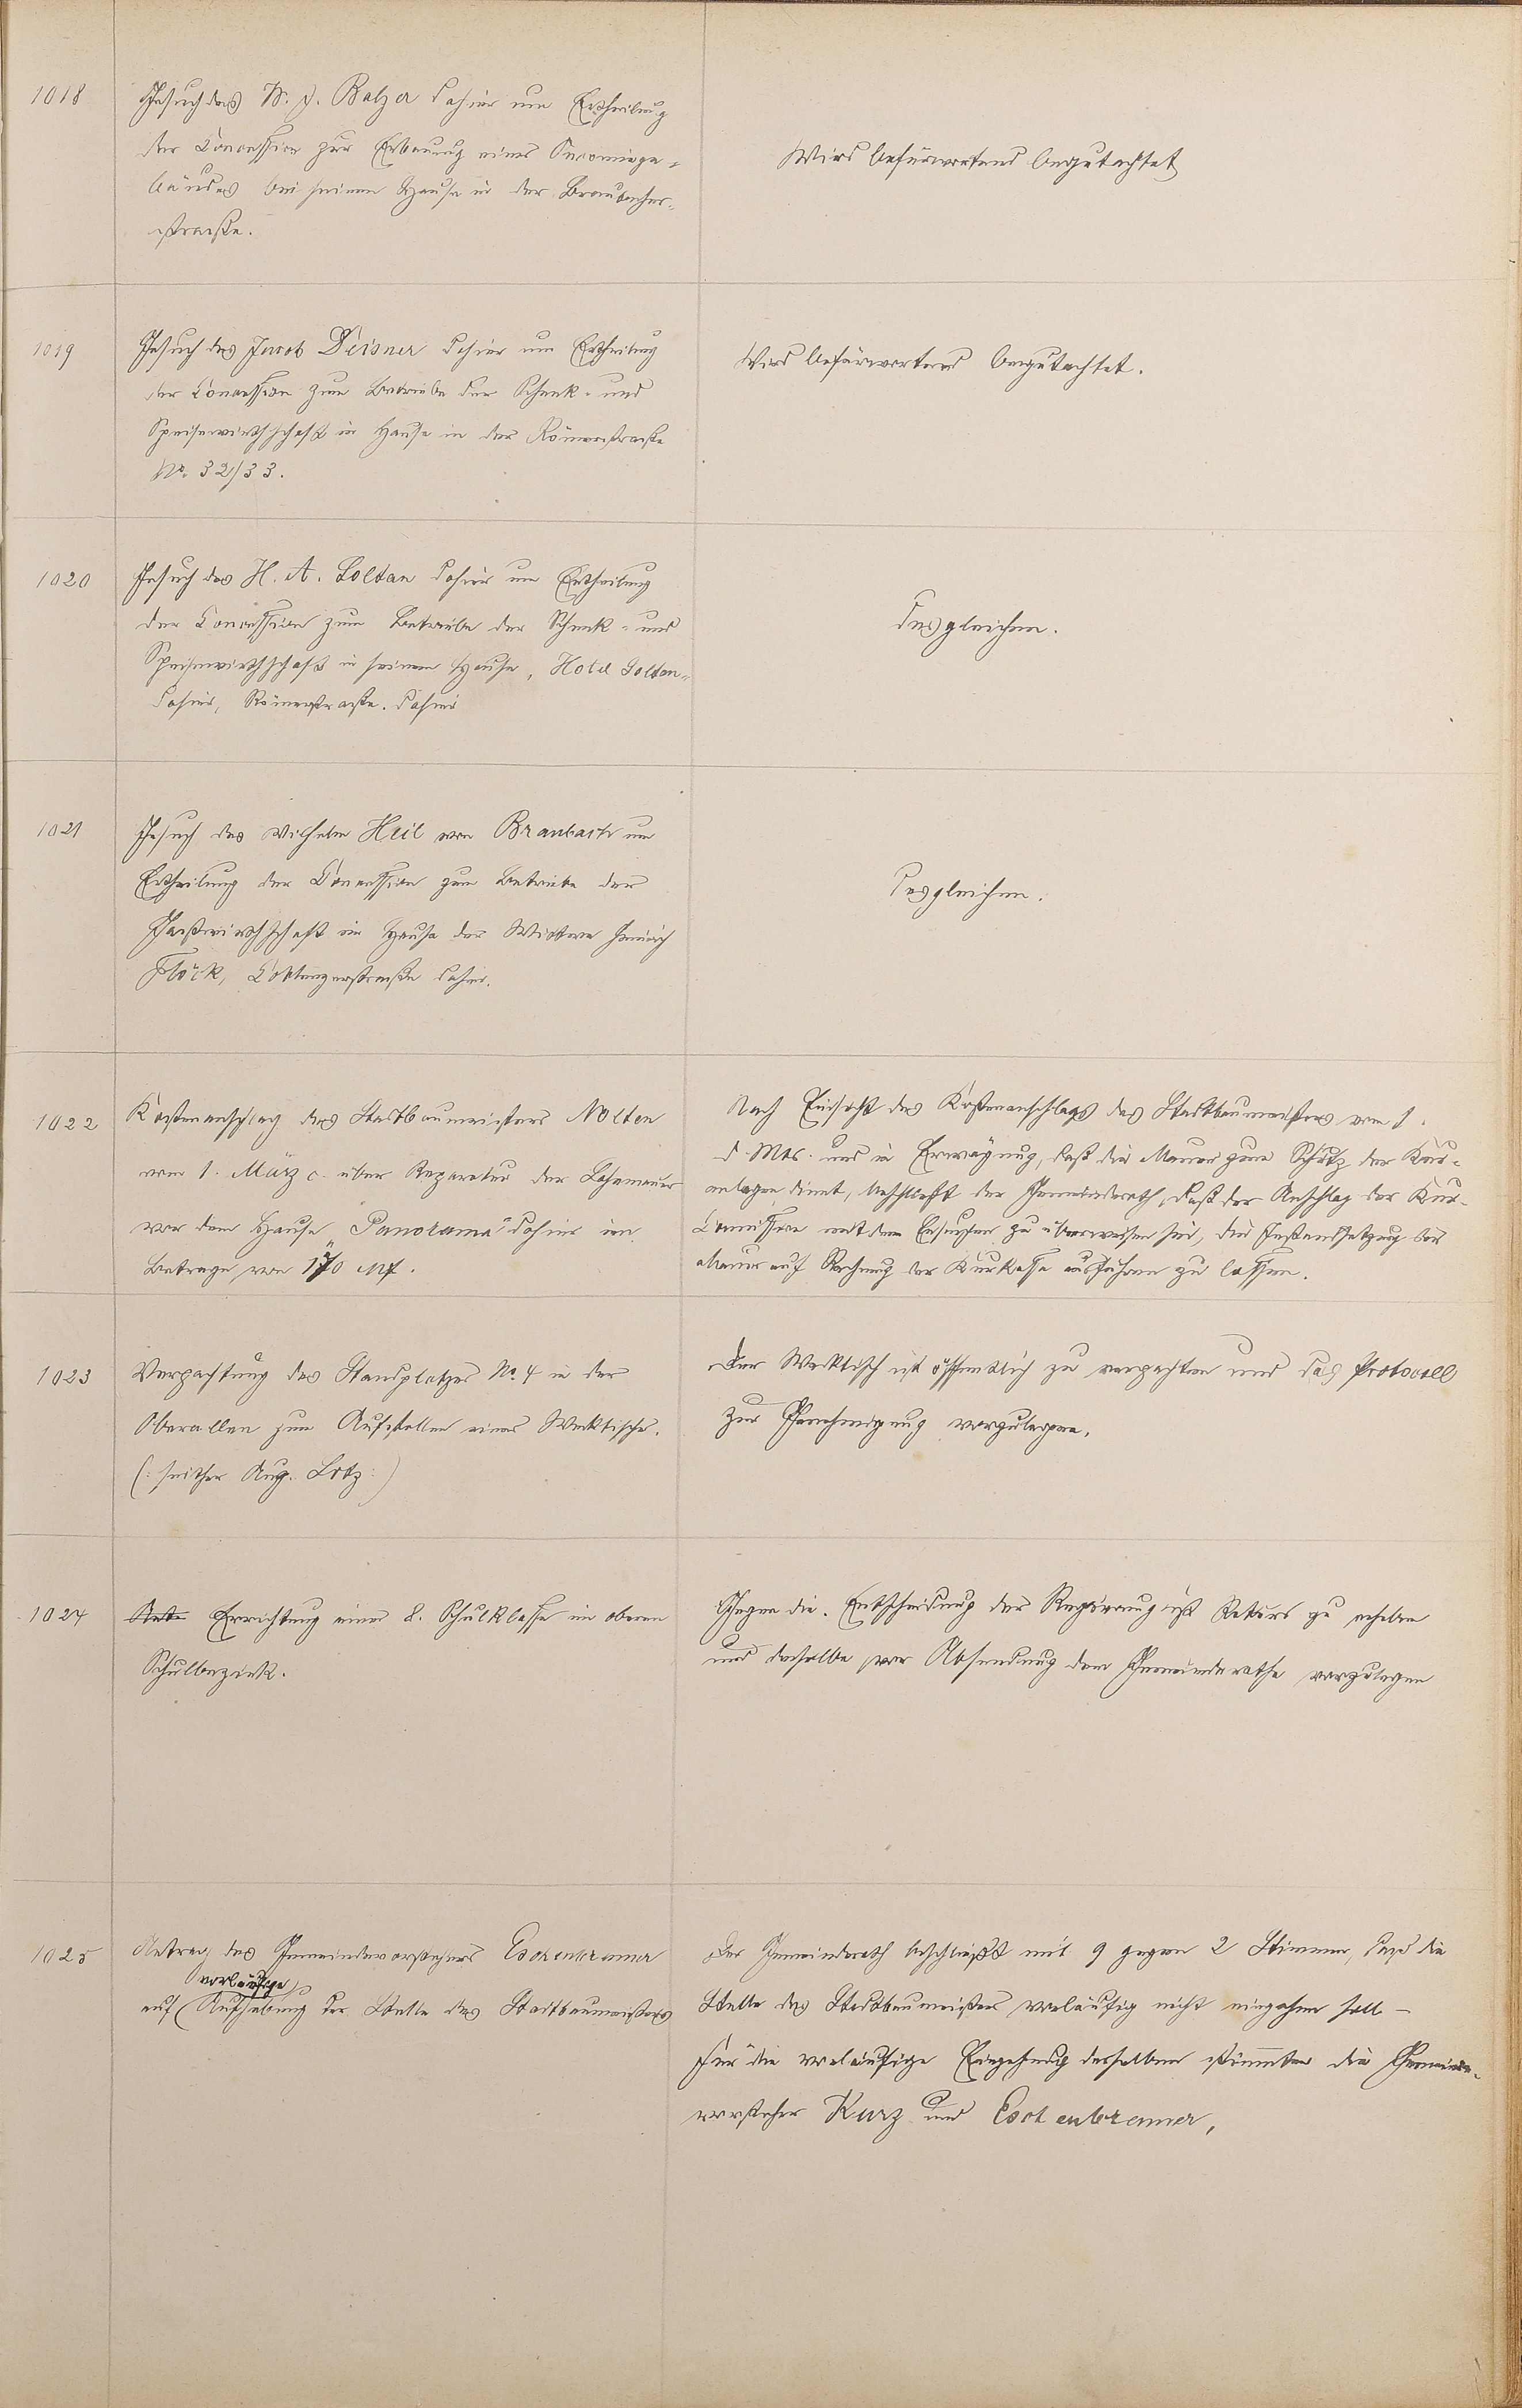 1018
Gesuch des W. J. Balzer dahier um Ertheilung
der Concession zur Erbauung eines Oeconomiege-
bäudes bei seinem Hause in der Braubacher-
straße.
Wird befürwortend begutachtet
1019
Gesuch des Jacob Deisner dahier um Ertheilung
der Concession zum Betriebe der Schenk- und
Speisewirthschaft im Hause in der Römerstraße
No. 32/33.
Wird befürwortend begutachtet.
1020
Gesuch des H. A. Soldan dahier um Ertheilung
der Concession zum Betriebe der Schenk- und
Speisewirthschaft in seinem Hause, Hotel Soldan
dahier, Römerstraße. dahier
Desgleichen.
1021
Gesuch des Wilhelm Heil von Braubach um
Ertheilung der Concession zum Betriebe der
Gastwirthschaft im Hause der Wittwe Heinrich
Flöck, Coblenzerstraße dahier.
Desgleichen.
1022
Kostenanschlag des Stadtbaumeisters Nolten
vom 1. März c. über Reparatur der Lahnmauer
vor dem Hause „Panorama" dahier im
Betrage von 170 Mk.
Nach Einsicht des Kostenanschlags des Stadtbaumeisters vom 1.
d. Mts. und in Erwägung, daß die Mauer zum Schutz der Kur-
anlagen dient, beschließt der Gemeinderath, daß der Anschlag der Kur-
Commission mit dem Ersuchen zu überweisen sei, die Instandsetzung der
Mauer auf Rechnung der Kurkasse ausführen zu lassen.
1023
Verpachtung des Standplatzes No. 4 in der
Oberallee zum Aufstellen eines Werktisches.
(: seither Aug. Lotz :)
Der Werktisch ist öffentlich zu verpachten und das Protocoll
zur Genehmigung vorzulegen.
1024
Errichtung einer 8. Schulklasse im oberen
Schulbezirk.
Gegen die Entscheidung der Regierung ist Rekurs zu erheben
und derselbe vor Absendung dem Gemeinderathe vorzulegen
1025
Antrag des Gemeindevorstehers Eschenbrenner
vorläufige
auf Aufhebung der Stelle des Stadtbaumeisters
Der Gemeinderath beschließt mit 9 gegen 2 Stimmen, daß die
Stelle des Stadtbaumeisters vorläufig nicht eingehen soll –
Für die vorläufige Eingehung derselben stimmten die Gemeinde-
vorsteher Kurz und Eschenbrenner,